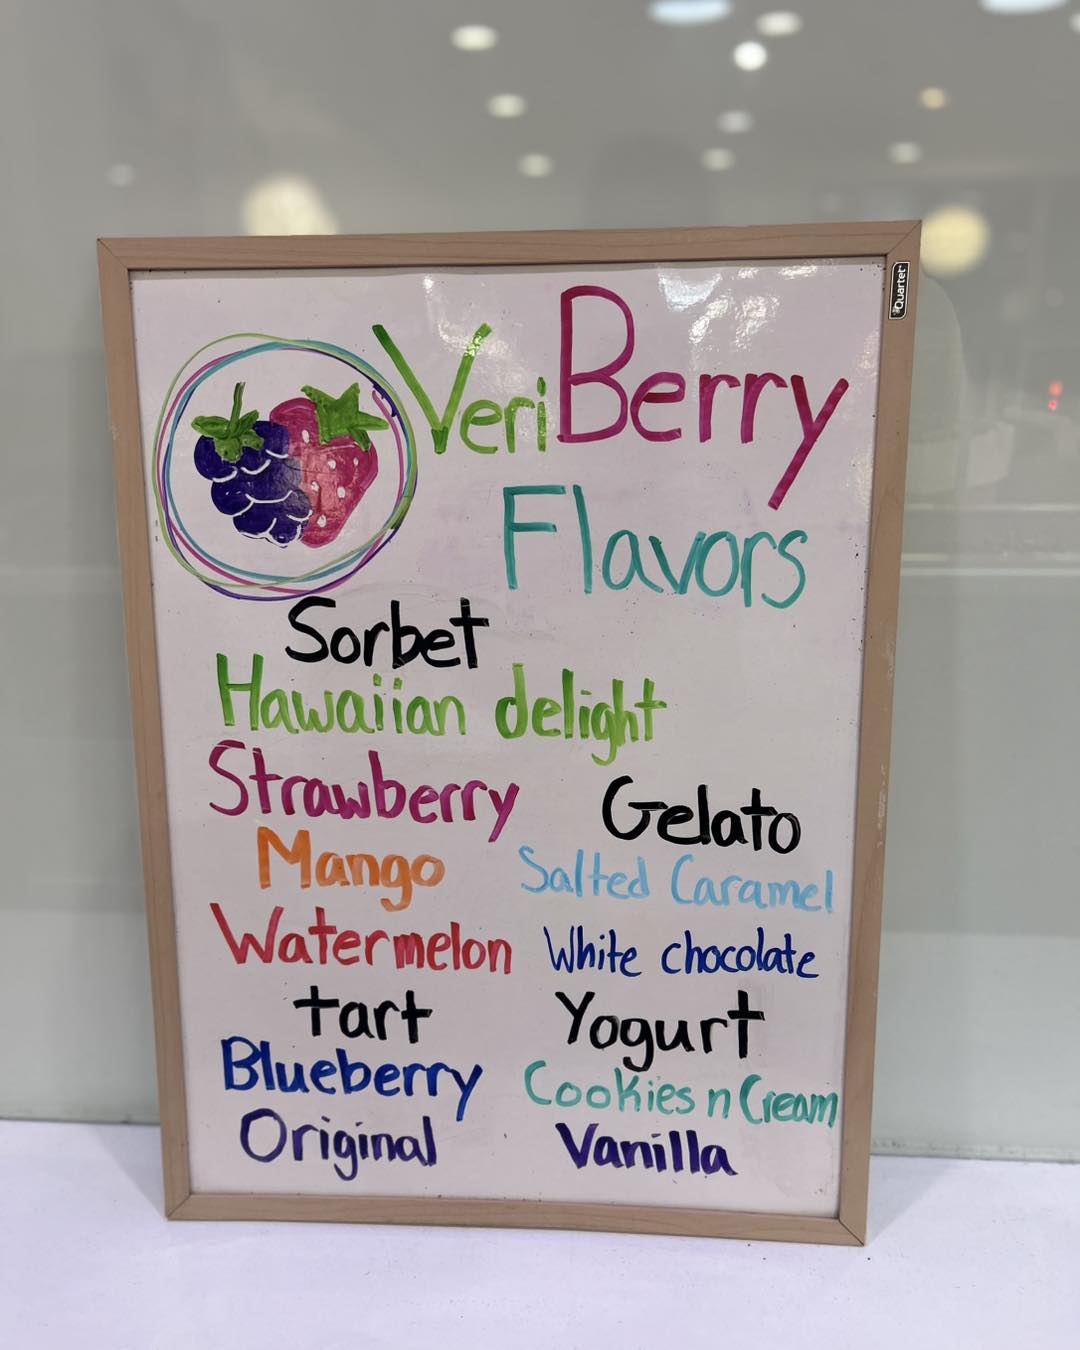 Quartet
VeriBerry
Flavors
Sorbet
Hawaiian delight
Strawberry
Mango
Watermelon
tart
Blueberry
Original
Gelato
Salted Caramel
White chocolate
Yogurt
Cookies n Cream
Vanilla